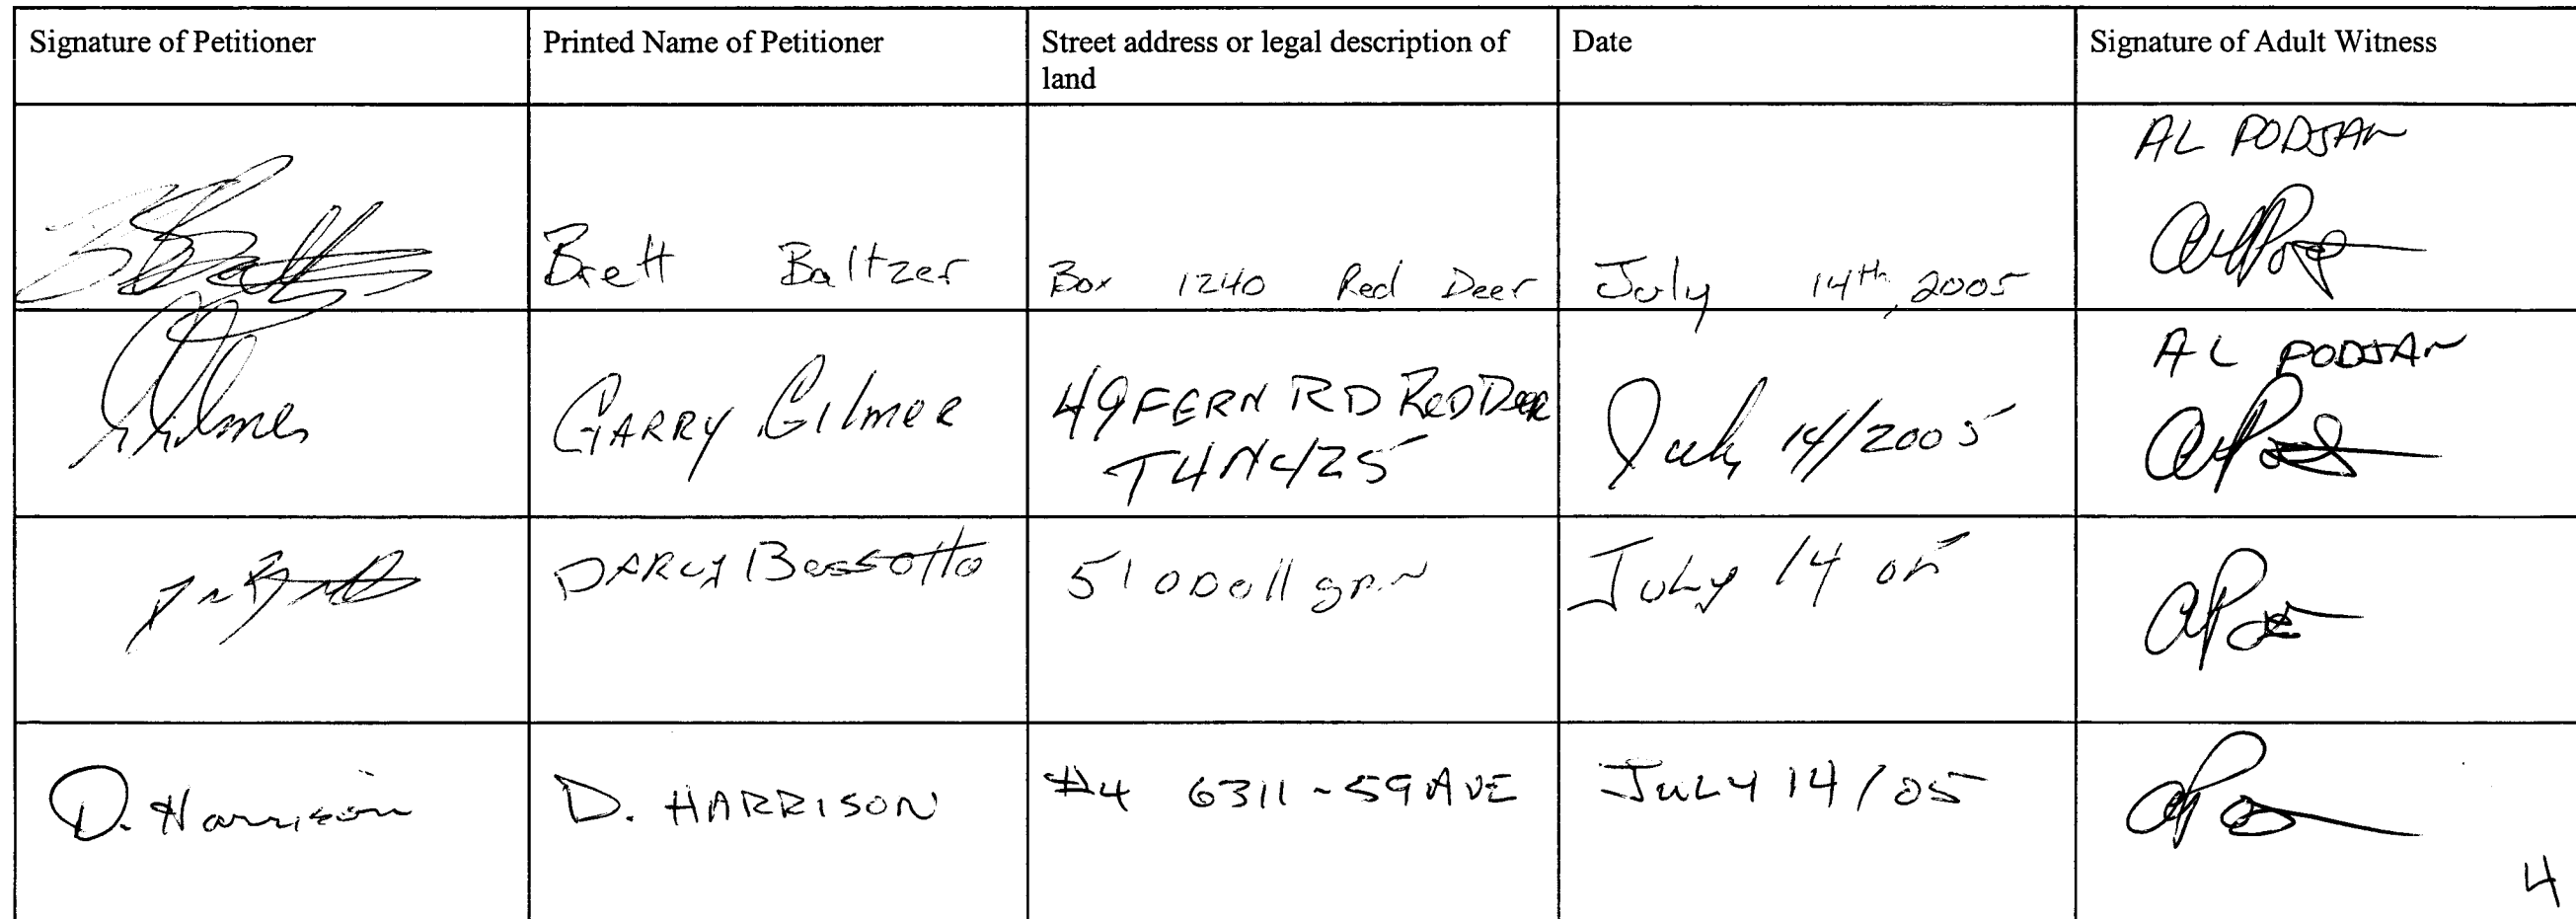 Signature of Petitioner
Printed Name of Petitioner
Street address or legal description of
land
Date
Signature of Adult Witness
Brett Baltzer
Box 1240 Red Deer
July 14th, 2005
AL PODJAN
GARRY GILMER
49 FERN RD RED DEER
T4N 4Z5
July 14/2005
AL PODJAN
DARCY Bossotto
51 ODell
July 14 05
D. Harrison
D. HARRISON
#4 6311-59 AVE
JULY 14/05
4